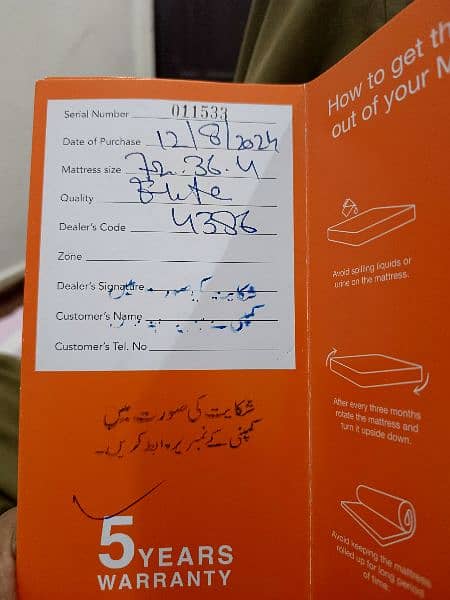 Serial Number 011533
Date of Purchase 12/8/2024
Mattress size 72.36.4
Quality Elite
Dealer's Code 4386
Zone
Dealer's Signature شکایت کی صورت میں
Customer's Name کمپنی کے
Customer's Tel. No
شکایت کی صورت میں
کمپنی کے نمبر پر رابطہ کریں۔
5 YEARS
WARRANTY
How to get th
out of your M
Avoid spilling liquids or
urine on the mattress.
After every three months
rotate the mattress and
turn it upside down.
Avoid keeping the mattress
rolled up for long period
of time.